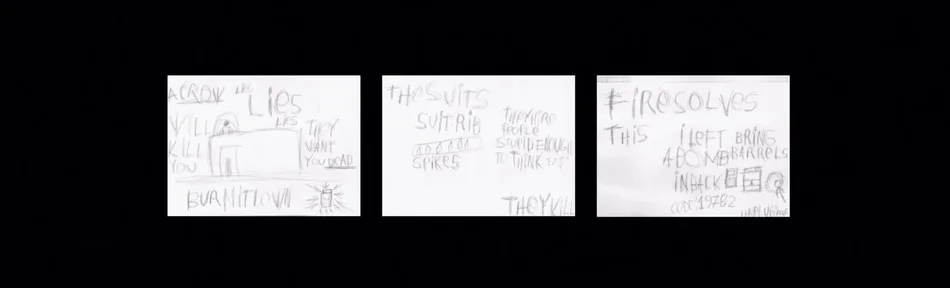 ACROW
LIES
Lies
LIES
WILL
KILL
YOU
THEY
WANT
YOU DEAD
BURN IT DOWN
THE SUITS
SUIT RIB
SPIKES
PEOPLE
STUPID ENOUGH
TO THINK
THEY KILL
FIRE SOLVES
THIS
i LEFT BRING
A BOMB BARRELS
IN BACK
CODE 19782